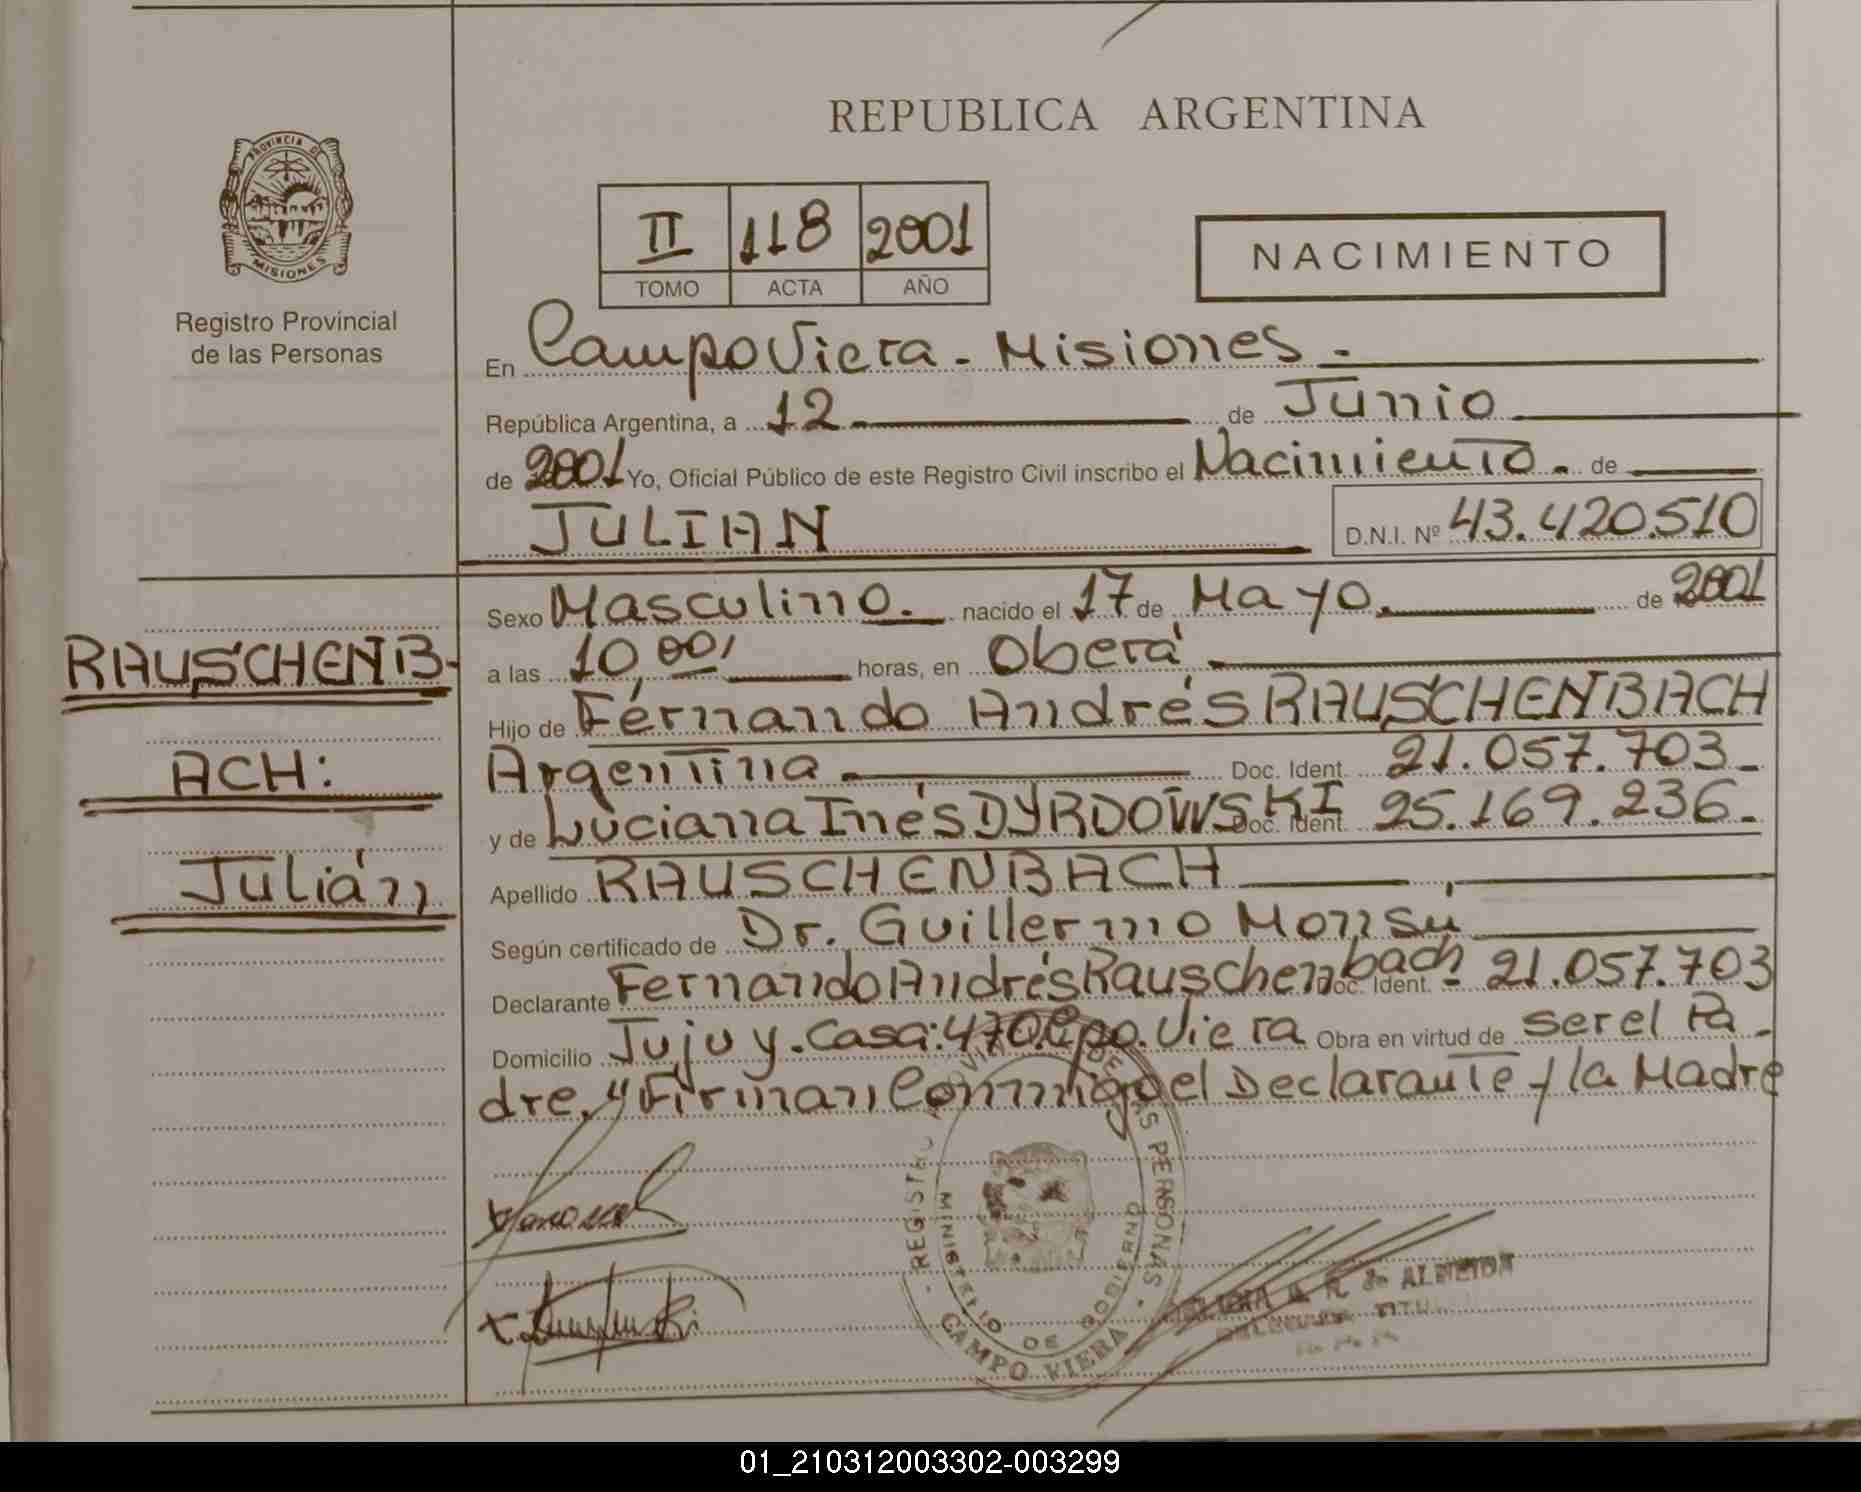 REPUBLICA ARGENTINA
PROVINCIA DE
MISIONES
Registro Provincial
de las Personas
II 118 2001
TOMO ACTA AÑO
NACIMIENTO
En Campo Viera - Misiones.-
República Argentina, a 12 de Junio
de 2001 Yo, Oficial Público de este Registro Civil inscribo el Nacimiento. de
JULIAN D.N.I. Nº 43.420.510
Sexo Masculino. nacido el 17 de Mayo. de 2001
a las 10,00, horas, en Oberá
Hijo de Fernando Andrés RAUSCHENBACH
Argentina Doc. Ident. 21.057.703-
y de Luciana Inés DYRDOWSKI Doc. Ident. 25.169.236-
Apellido RAUSCHENBACH
Según certificado de Dr. Guillermo Monsú
Declarante Fernando Andrés Rauschenbach Doc. Ident. - 21.057.703
Domicilio Jujuy. Casa: 470. Cpo. Viera Obra en virtud de ser el Pa-
dre, y Firman Conmigo el Declarante y la Madre
RAUSCHENB-
ACH:
Julián
REGISTRO PROVINCIAL DE LAS PERSONAS
MINISTERIO DE GOBIERNO
CAMPO VIERA
de ALMEIDA
01_210312003302-003299